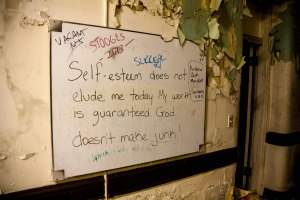 VACANT
STOOGES
SUCCESS
Self-esteem does not
elude me today My worth
is guaranteed God
doesn't make junk!